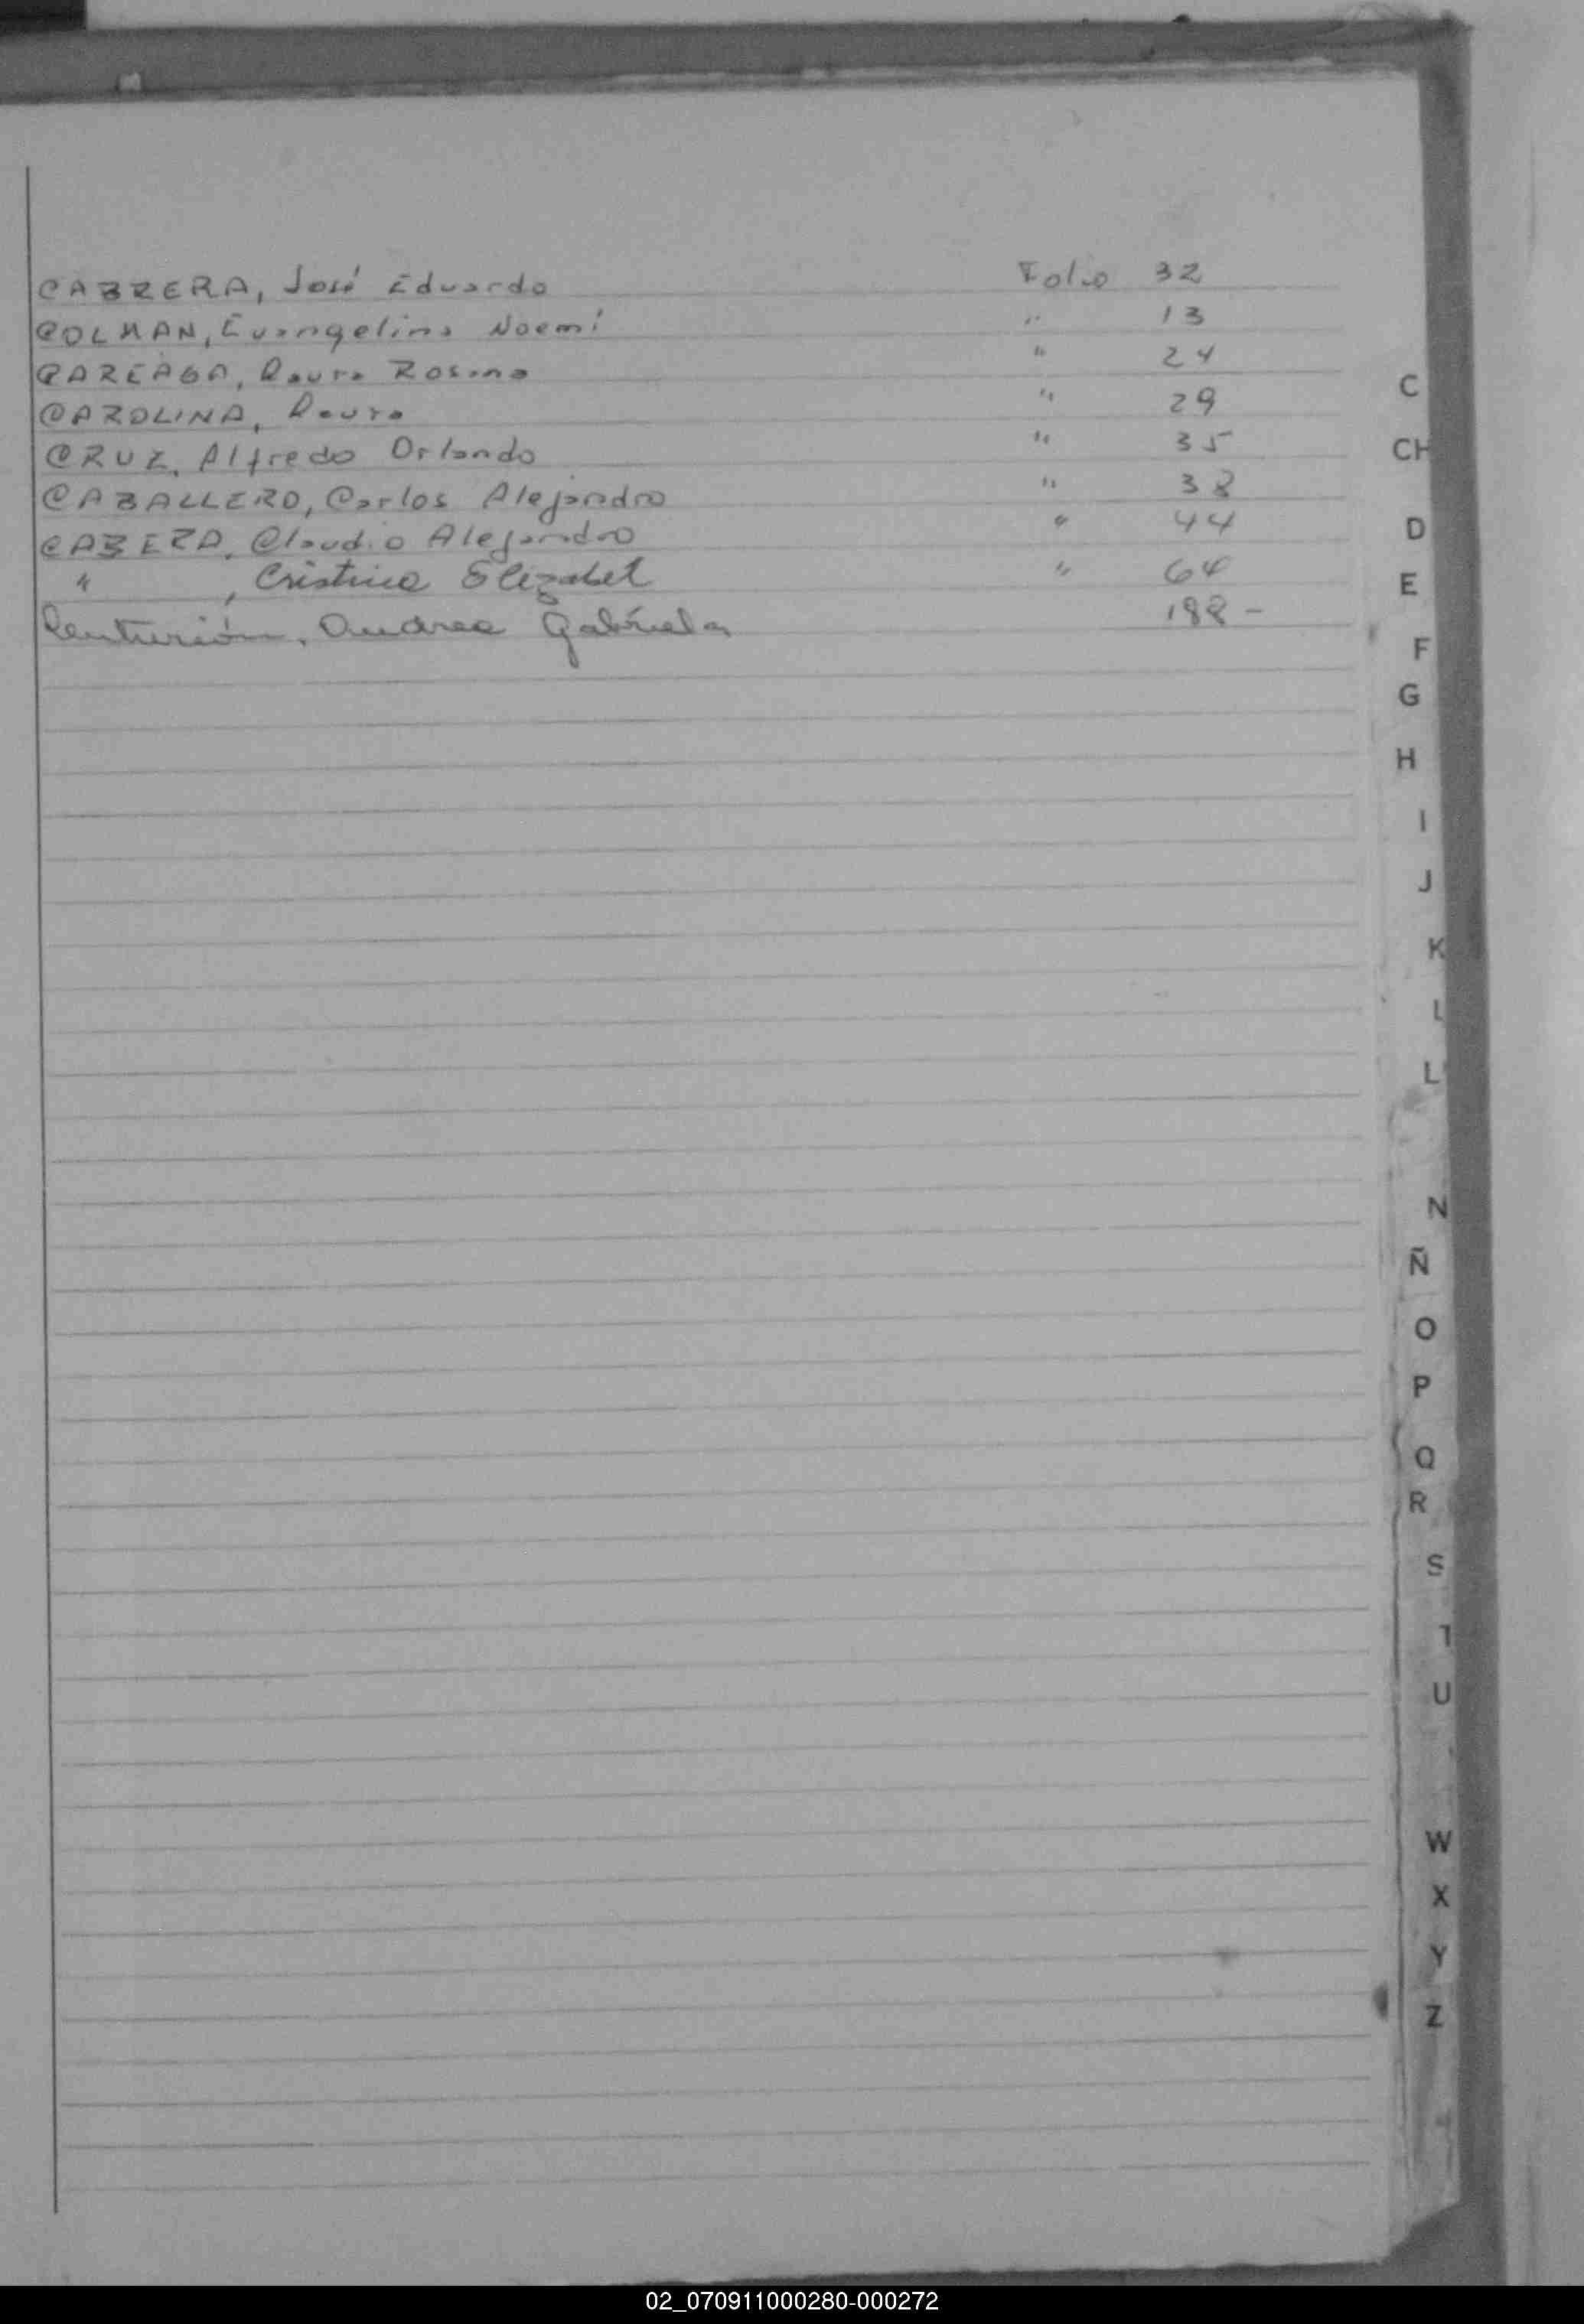 CABRERA, José Eduardo Folio 32
COLMAN, Evangelina Noemí " 13
CAREAGA, Laura Rosana " 24
CAROLINA, Laura " 29
CRUZ, Alfredo Orlando " 35
CABALLERO, Carlos Alejandro " 38
CABEZA, Claudio Alejandro " 44
" , Cristina Elizabet " 64
Centurión, Andrea Gabriela 188 -
C
CH
D
E
F
G
H
I
J
K
L
L
N
Ñ
O
P
Q
R
S
T
U
W
X
Y
Z
02_070911000280-000272